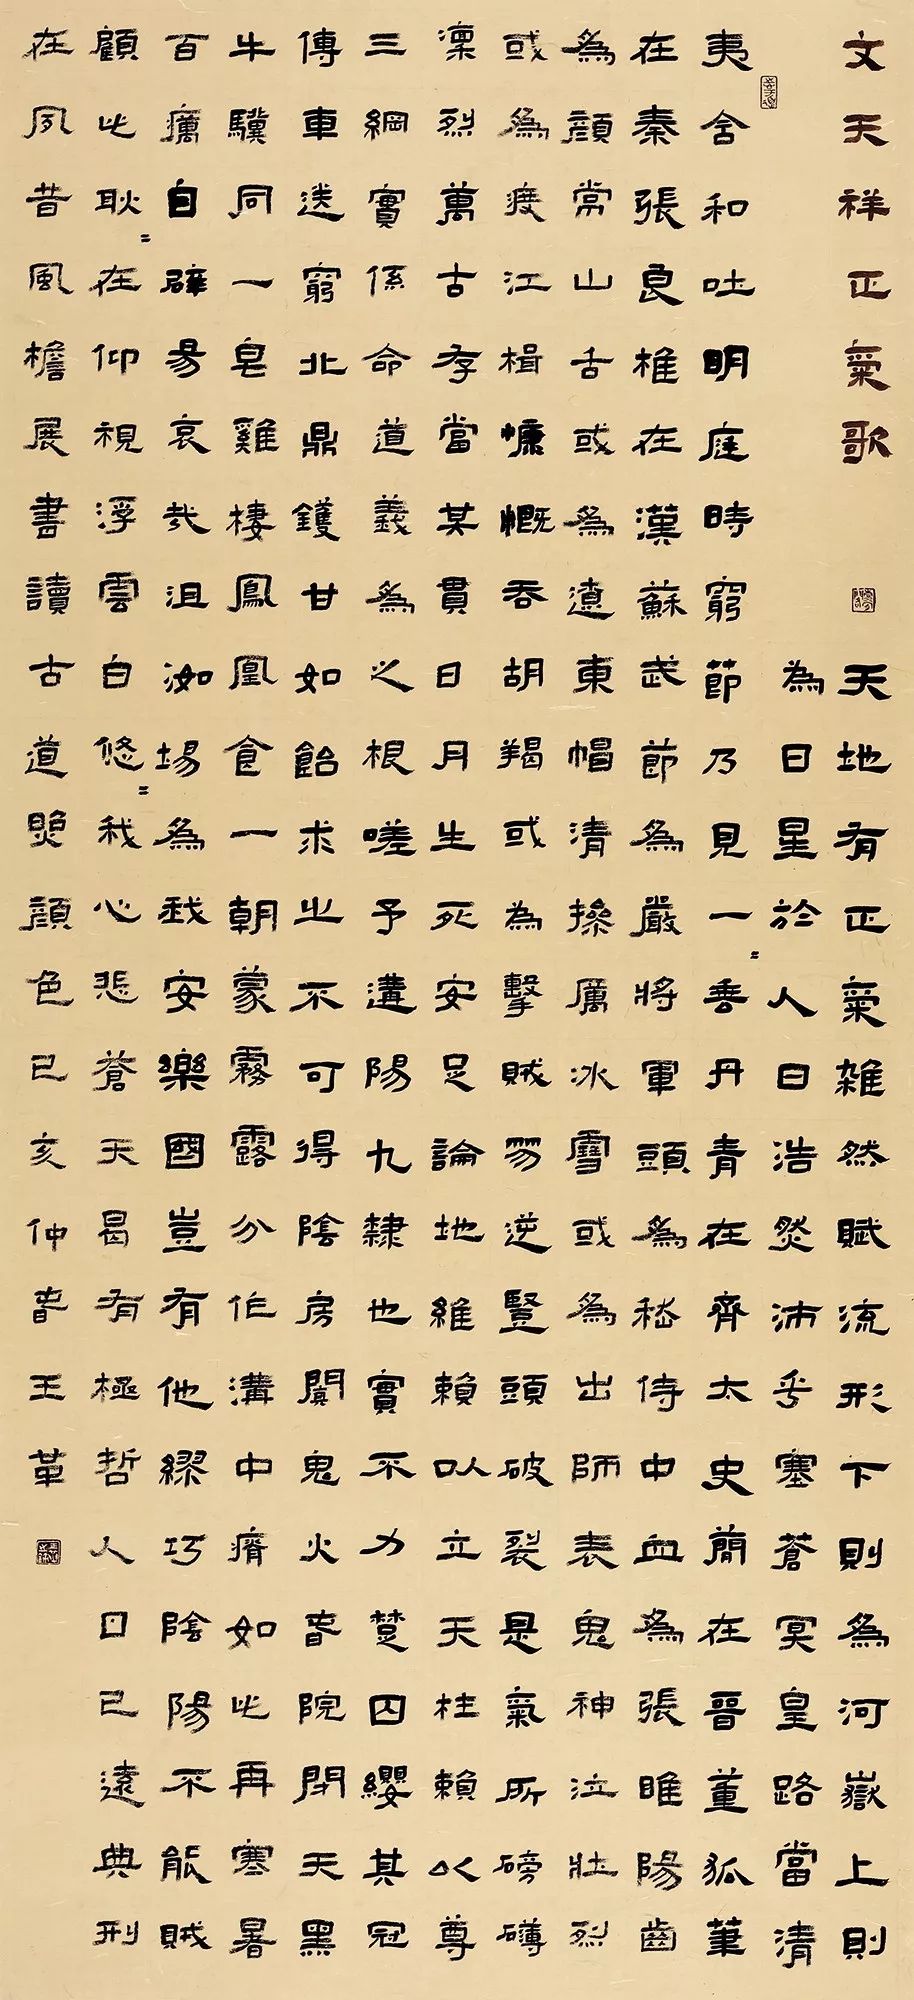 文天祥正氣歌
天地有正氣雜然賦流形下則為河嶽上則
為日星於人曰浩然沛乎塞蒼冥皇路當清
夷含和吐明庭時窮節乃見一〻垂丹青在齊太史簡在晉董狐筆
在秦張良椎在漢蘇武節為嚴將軍頭為嵇侍中血為張睢陽齒
為顏常山舌或為遼東帽清操厲冰雪或為出師表鬼神泣壯烈
或為渡江楫慷慨吞胡羯或為擊賊笏逆豎頭破裂是氣所磅礴
凜烈萬古存當其貫日月生死安足論地維賴以立天柱賴以尊
三綱實係命道義為之根嗟予遘陽九隸也實不力楚囚纓其冠
傳車送窮北鼎鑊甘如飴求之不可得陰房闃鬼火春院閉天黑
牛驥同一皂雞棲鳳凰食一朝蒙霧露分作溝中瘠如此再寒暑
百癘自辟易哀哉沮洳場為我安樂國豈有他繆巧陰陽不能賊
顧此耿〻在仰視浮雲白悠〻我心悲蒼天曷有極哲人日已遠典刑
在夙昔風檐展書讀古道照顏色己亥仲春王革